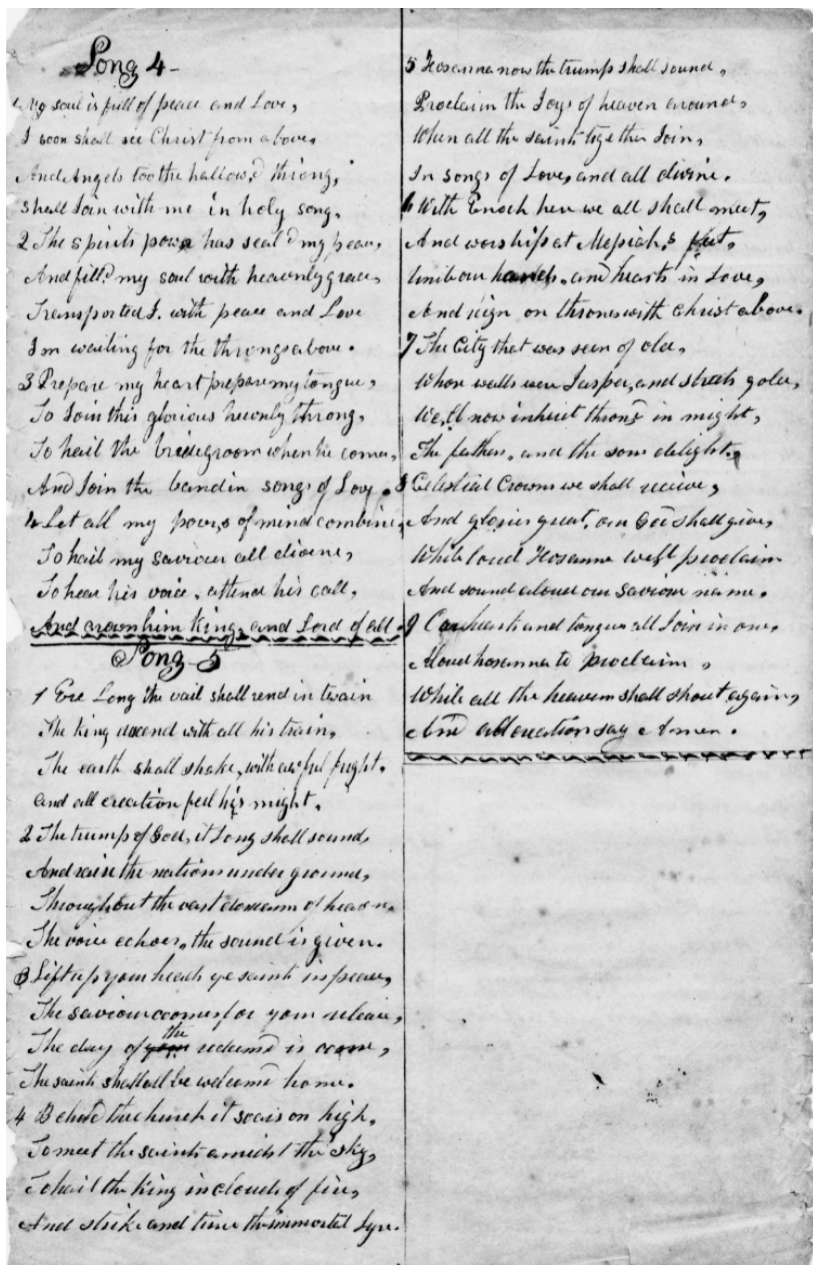 Song 4-
1 My soul is full of peace and Love,
I soon shall see Christ from above,
And Angels too the hallow,d throng,
Shall Join with me in holy song.
2 The spirits power has seal'd my peace,
And fill,d my soul with heavenly grace,
Transported I. with peace and Love
I m waiting for the throngs above.
3 Prepare my heart prepare my tongue,
To Join this glorious heavnly throng,
To hail the bridegroom when he comes,
And Join the band in songs of Love.
4 Let all my power,s of mind combine,
To hail my saviour all divine,
To hear his voice, attend his call,
And crown him King, and Lord of all.
Song 5
1 Ere Long the vail shall rend in twain
The King descend with all his train,
The earth shall shake, with awful fright.
and all creation feel his might.
2 The trump of God, it Long shall sound,
And raise the nations under ground,
Throughout the vast of heaven.
The voice echoes, the sound is given.
3 Lift up your heads ye saints in peace,
The saviour comes for your release,
The day of the redeem'd is come,
The saints shall all be welcom'd home.
4 Behold the church it soars on high,
To meet the saints amidst the sky,
To hail the King in clouds of fire,
And strike and tune the immortal Lyre.
5 Hosanna now the trump shall sound,
Proclaim the Joys of heaven around,
When all the saints together Join,
In songs of Love, and all divine.
6 With Enoch here we all shall meet,
And worship at Messiah,s feet,
Unite our hands, and hearts in Love,
And reign on thrones with Christ above.
7 The City that was seen of old,
Whose walls were Jasper, and streets gold,
We,ll now inherit thron'd in might,
The father, and the sons delight.
8 Celestial Crowns we shall receive,
And glories great, our God shall give,
While loud Hosannas we'll proclaim
And sound aloud our saviours name.
9 Our hearts and tongues all Join in one,
Aloud hosannas to proclaim,
While all the heavens shall shout again,
And all creation say Amen.